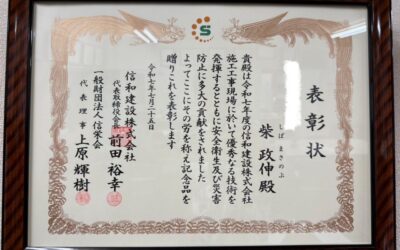 表彰状
しば まさのぶ
柴 政伸 殿
貴殿は令和七年度の信和建設株式会社
施工工事現場に於いて優秀なる技術を
発揮するとともに安全衛生及び災害
防止に多大の貢献をされました
よってここにその労を称え記念品を
贈りこれを表彰します
令和七年七月二十五日
信和建設株式会社
代表取締役会長 前田裕幸
一般財団法人信栄会
代表理事 上原輝樹
S